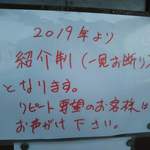 2019年より
紹介制(一見お断り)
となります。
リピート希望のお客様は
お声がけ下さい。